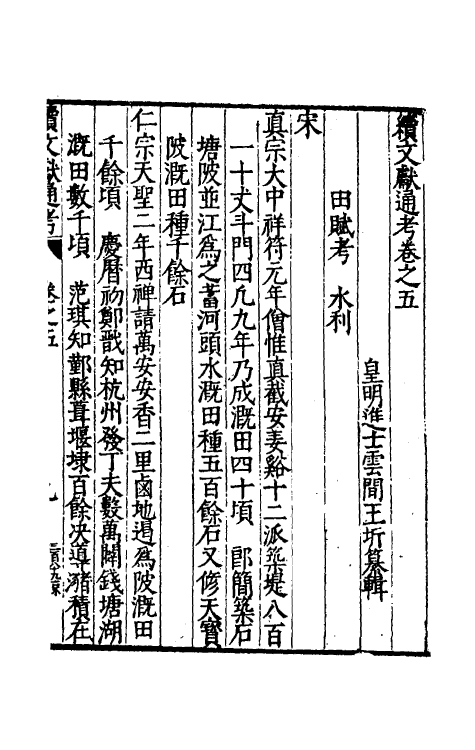 續文獻通考卷之五
皇明進士雲間王圻纂輯
田賦考 水利
宋
真宗大中祥符元年僧惟真截安妻谿十二派築堤八百
一十丈斗門四凢九年乃成溉田四十頃 郎簡築石
塘陂並江為之蓄河頭水溉田種五百餘石又修天寳
陂溉田種千餘石
仁宗天聖二年西禅請萬安安香二里鹵地遏為陂溉田
千餘頃 慶曆初鄭戩知杭州發丁夫數萬闢錢塘湖
溉田數千頃 范琪知鄞縣葺堰埭百餘决導瀦積在
續文獻通考 卷之五 九